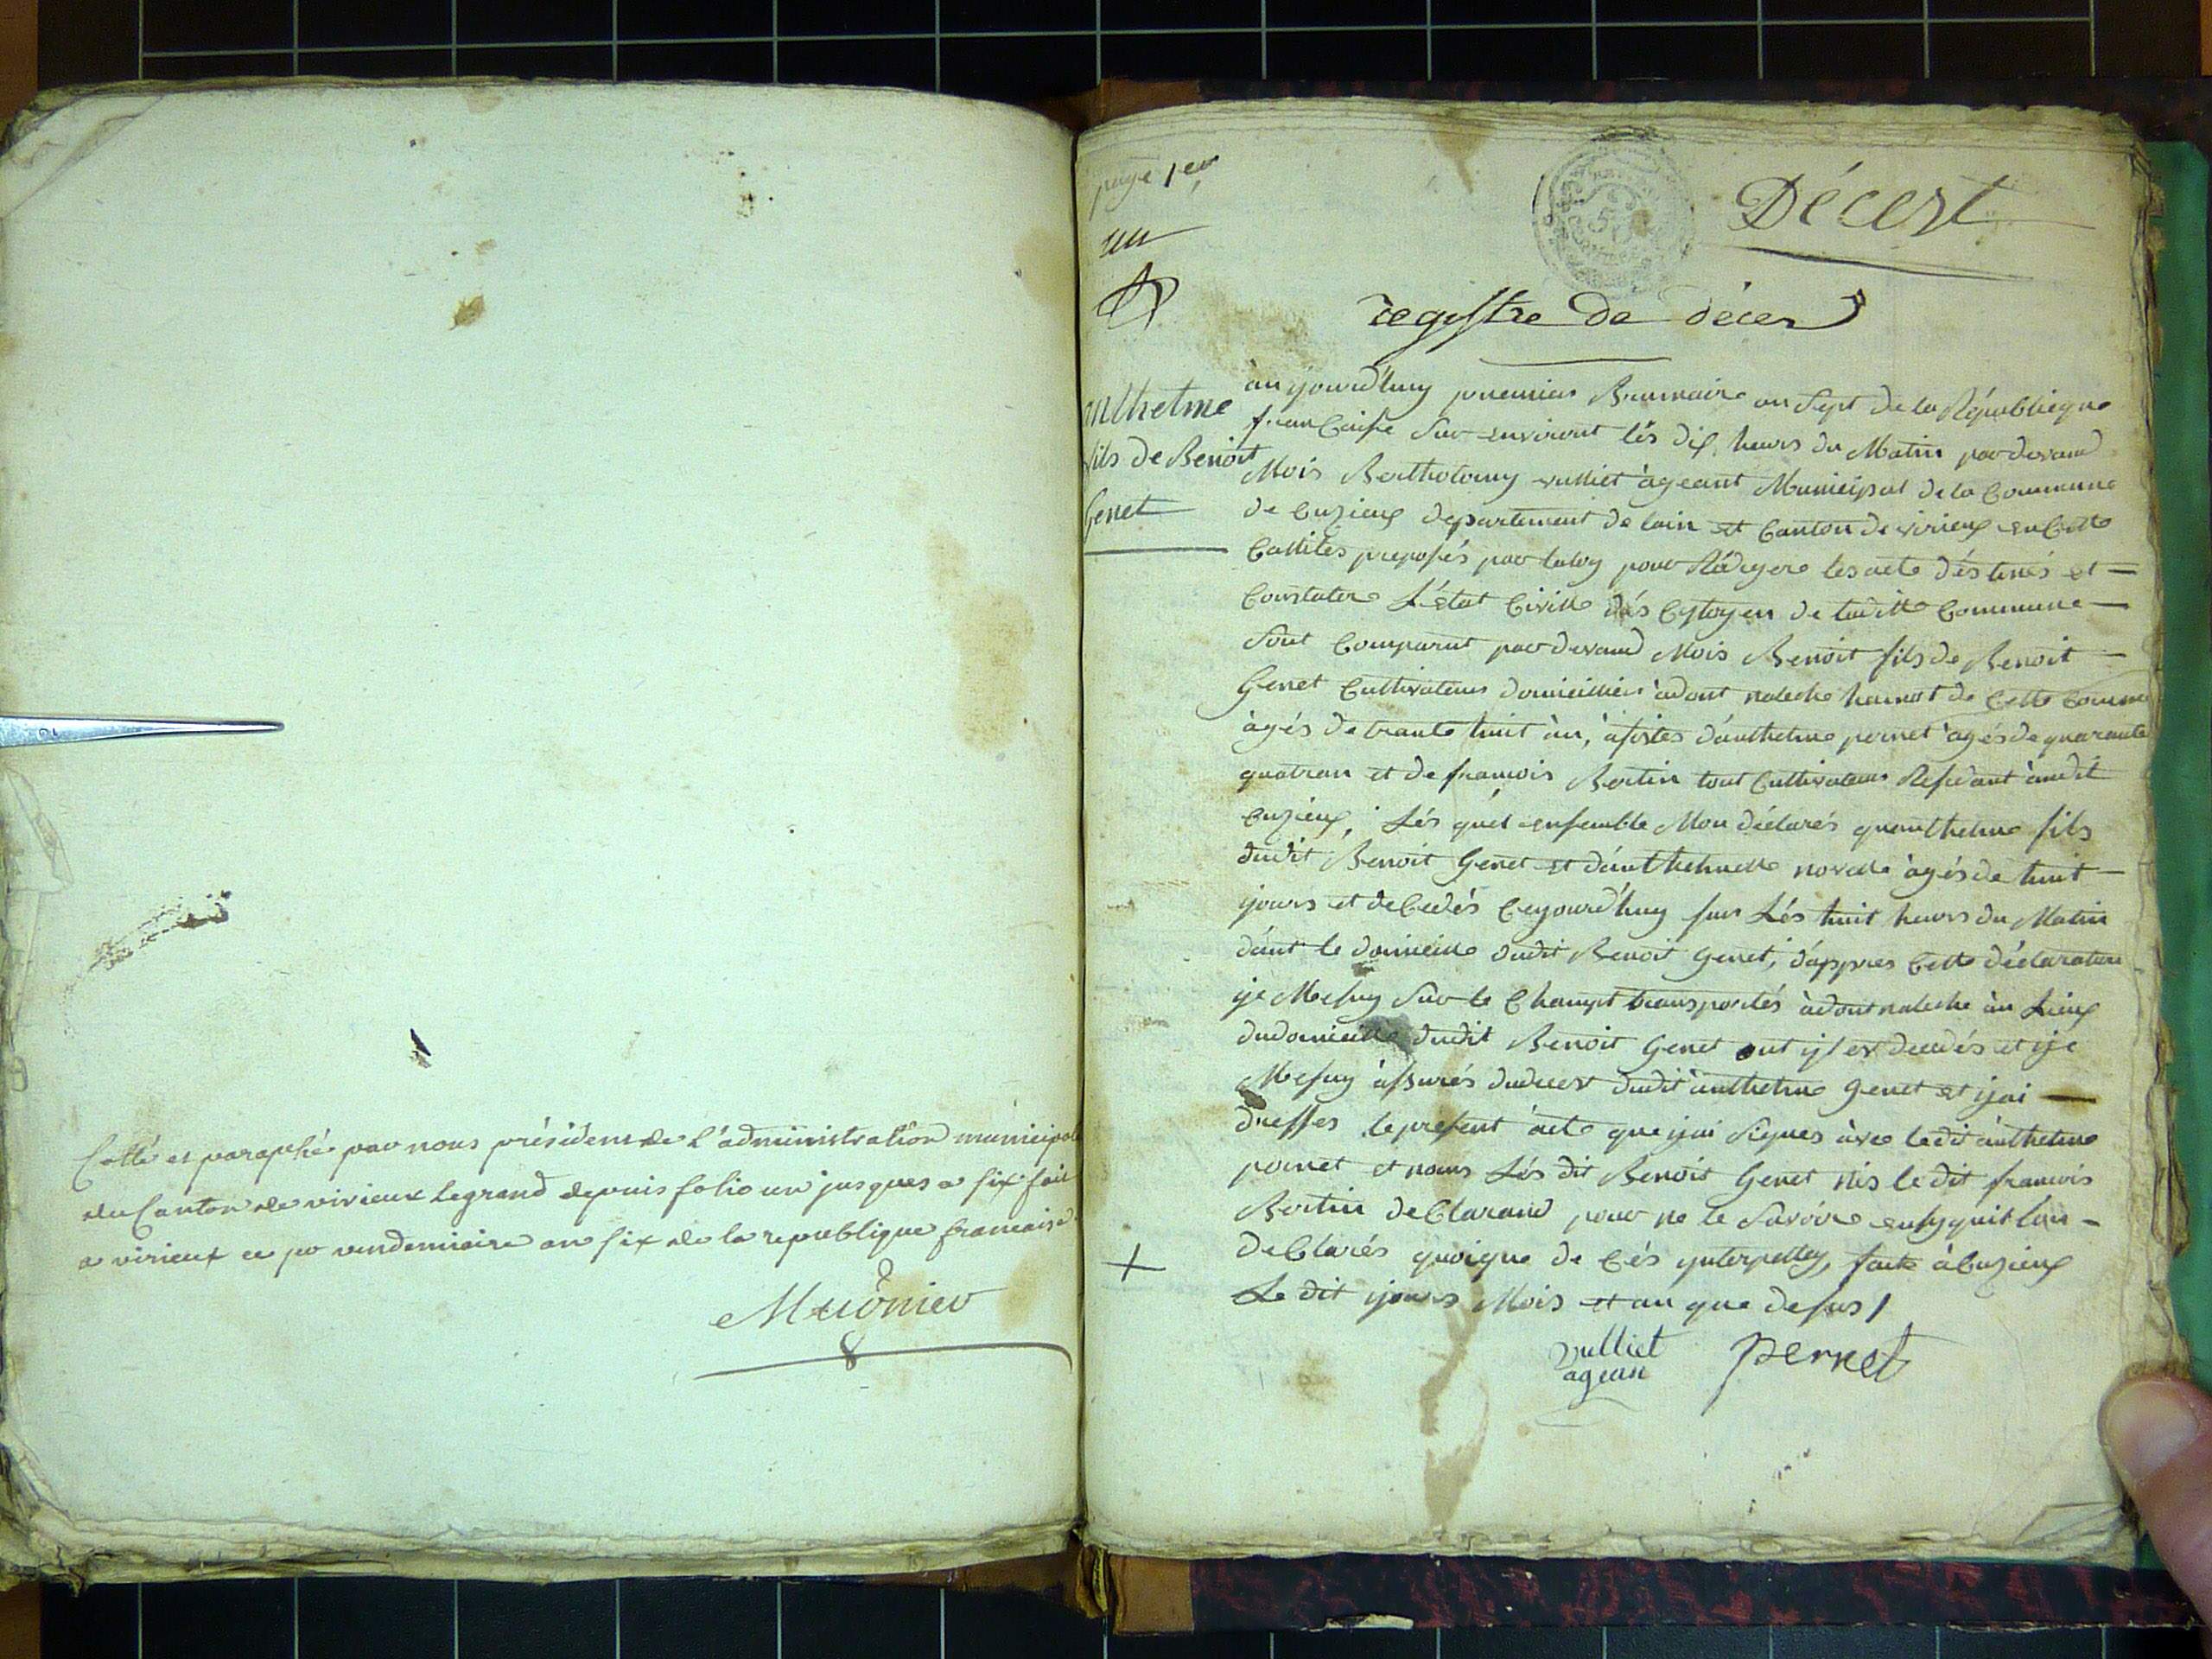 Cotté et paraphé par nous président de l'administration municipale
du Canton de virieux legrand depuis folio un jusques a six fait
a virieux ce pr vendemiaire an six de la republique francaise
Meünier
page 1er
un
Décest
registre de déces
anthelme
fils de Benoit
Genet
àujourd'huy premier Brumaire an Sept de la République
francaise Sur environt lés dix heurs du Matin par devand
Mois Bertholomy vulliet àgeant Municipal de la Commune
de Cuzieux departement de lain et Canton de virieux en Cette
Callités preposés par laloy pour Rédigere les acte déstinés et
Constatere L'état Civille dés Cytoyen de laditte Commune
Sont Comparut par devand Mois Benoit fils de Benoit
Genet Cultivateur domicillier àdont naleche hamot de Cette Comune
àgés de trante huit àn, àsistés dánthelme pernet àgés de quarante
quatran et de francois Bertin tout Cultivateur Resedant àudit
Cuzieux, Lés quel ensemble Mon déclarés quanthelme fils
dudit Benoit Genet et dánthelmette novelle àgés de huit
jours et decedés Cejourd'huy sur Lés huit heurs du Matin
dánt le domicille dudit Benoit Genet, dáppres Cette déclaration
je Mesuy Sur le Champt transportés àdont naleche àu Lieux
dudomicille dudit Benoit Genet out yl est decedés et je
Mesuy àssurés dudecest dudit ànthelme Genet et jai
dresses le present acte que jai Signes àvec ledit ànthelme
pernet et nom Lés dit Benoit Genet nis le dit francois
Bertin deClarand pour ne le Savoire ensy quil lon
deClarés quoique de Cés ynterpelley, faite àCuzieux
Le dit jours Mois et an que desus /
vulliet
agean
Pernet